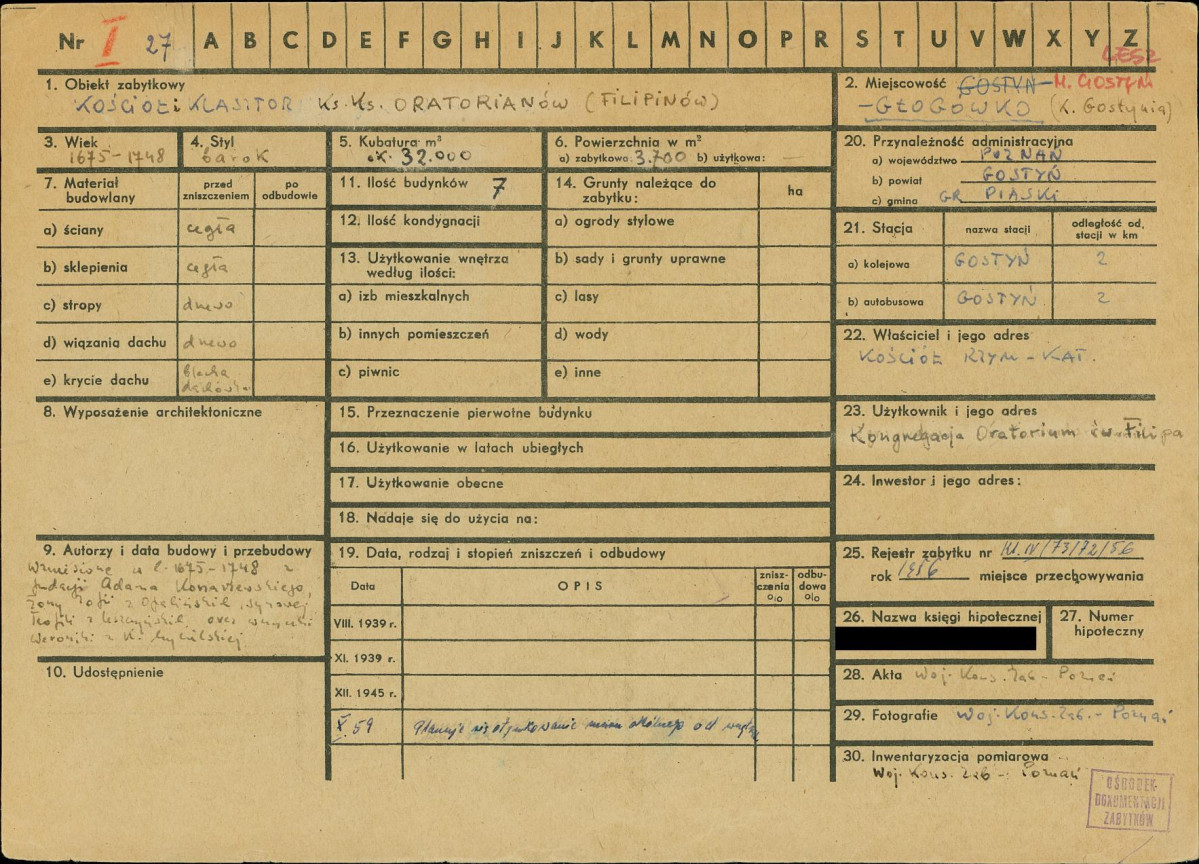 Nr I 27 A B C D E F G H I J K L M N O P R S T U V W X Y Z
LESZ
1. Obiekt zabytkowy
KOŚCIÓŁ i KLASZTOR Ks. Ks. ORATORIANÓW (FILIPINÓW)
2. Miejscowość GOSTYŃ - M. GOSTYŃ
- GŁOGÓWKO (K. Gostynia)
3. Wiek
1675-1748
4. Styl
barok
5. Kubatura m³
ok. 32.000
6. Powierzchnia w m²
a) zabytkowa: 3.700 b) użytkowa: —
20. Przynależność administracyjna
a) województwo POZNAŃ
b) powiat GOSTYŃ
c) gmina GR. PIASKI
7. Materiał budowlany
przed zniszczeniem
po odbudowie
a) ściany cegła
b) sklepienia cegła
c) stropy drewno
d) wiązania dachu drewno
e) krycie dachu blacha dachówka
11. Ilość budynków 7
12. Ilość kondygnacji
13. Użytkowanie wnętrza
według ilości:
a) izb mieszkalnych
b) innych pomieszczeń
c) piwnic
14. Grunty należące do
zabytku:
ha
a) ogrody stylowe
b) sady i grunty uprawne
c) lasy
d) wody
e) inne
21. Stacja
nazwa stacji
odległość od
stacji w km
a) kolejowa GOSTYŃ 2
b) autobusowa GOSTYŃ 2
22. Właściciel i jego adres
KOŚCIÓŁ RZYM-KAT.
8. Wyposażenie architektoniczne
15. Przeznaczenie pierwotne budynku
16. Użytkowanie w latach ubiegłych
17. Użytkowanie obecne
18. Nadaje się do użycia na:
23. Użytkownik i jego adres
Kongregacja Oratorium św. Filipa
24. Inwestor i jego adres:
9. Autorzy i data budowy i przebudowy
Wzniesione w l. 1675-1748 z
fundacji Adama Konarzewskiego,
żony Zofii z Opalińskich, synowej
Teofili z Leszczyńskich oraz wnuczki
Weroniki z K. Mycielskiej
10. Udostępnienie
19. Data, rodzaj i stopień zniszczeń i odbudowy
Data
OPIS
znisz-
czenia
%
odbu-
dowa
%
VIII. 1939 r.
XI. 1939 r.
XII. 1945 r.
X. 59 Planuje się otynkowanie muru okólnego od
25. Rejestr zabytku nr Kl. IV/73/72/56
rok 1956 miejsce przechowywania
26. Nazwa księgi hipotecznej
27. Numer
hipoteczny
28. Akta Woj. Kons. Zab. - Poznań
29. Fotografie Woj. Kons. Zab. - Poznań
30. Inwentaryzacja pomiarowa
Woj. Kons. Zab - Poznań
OŚRODEK
DOKUMENTACJI
ZABYTKÓW